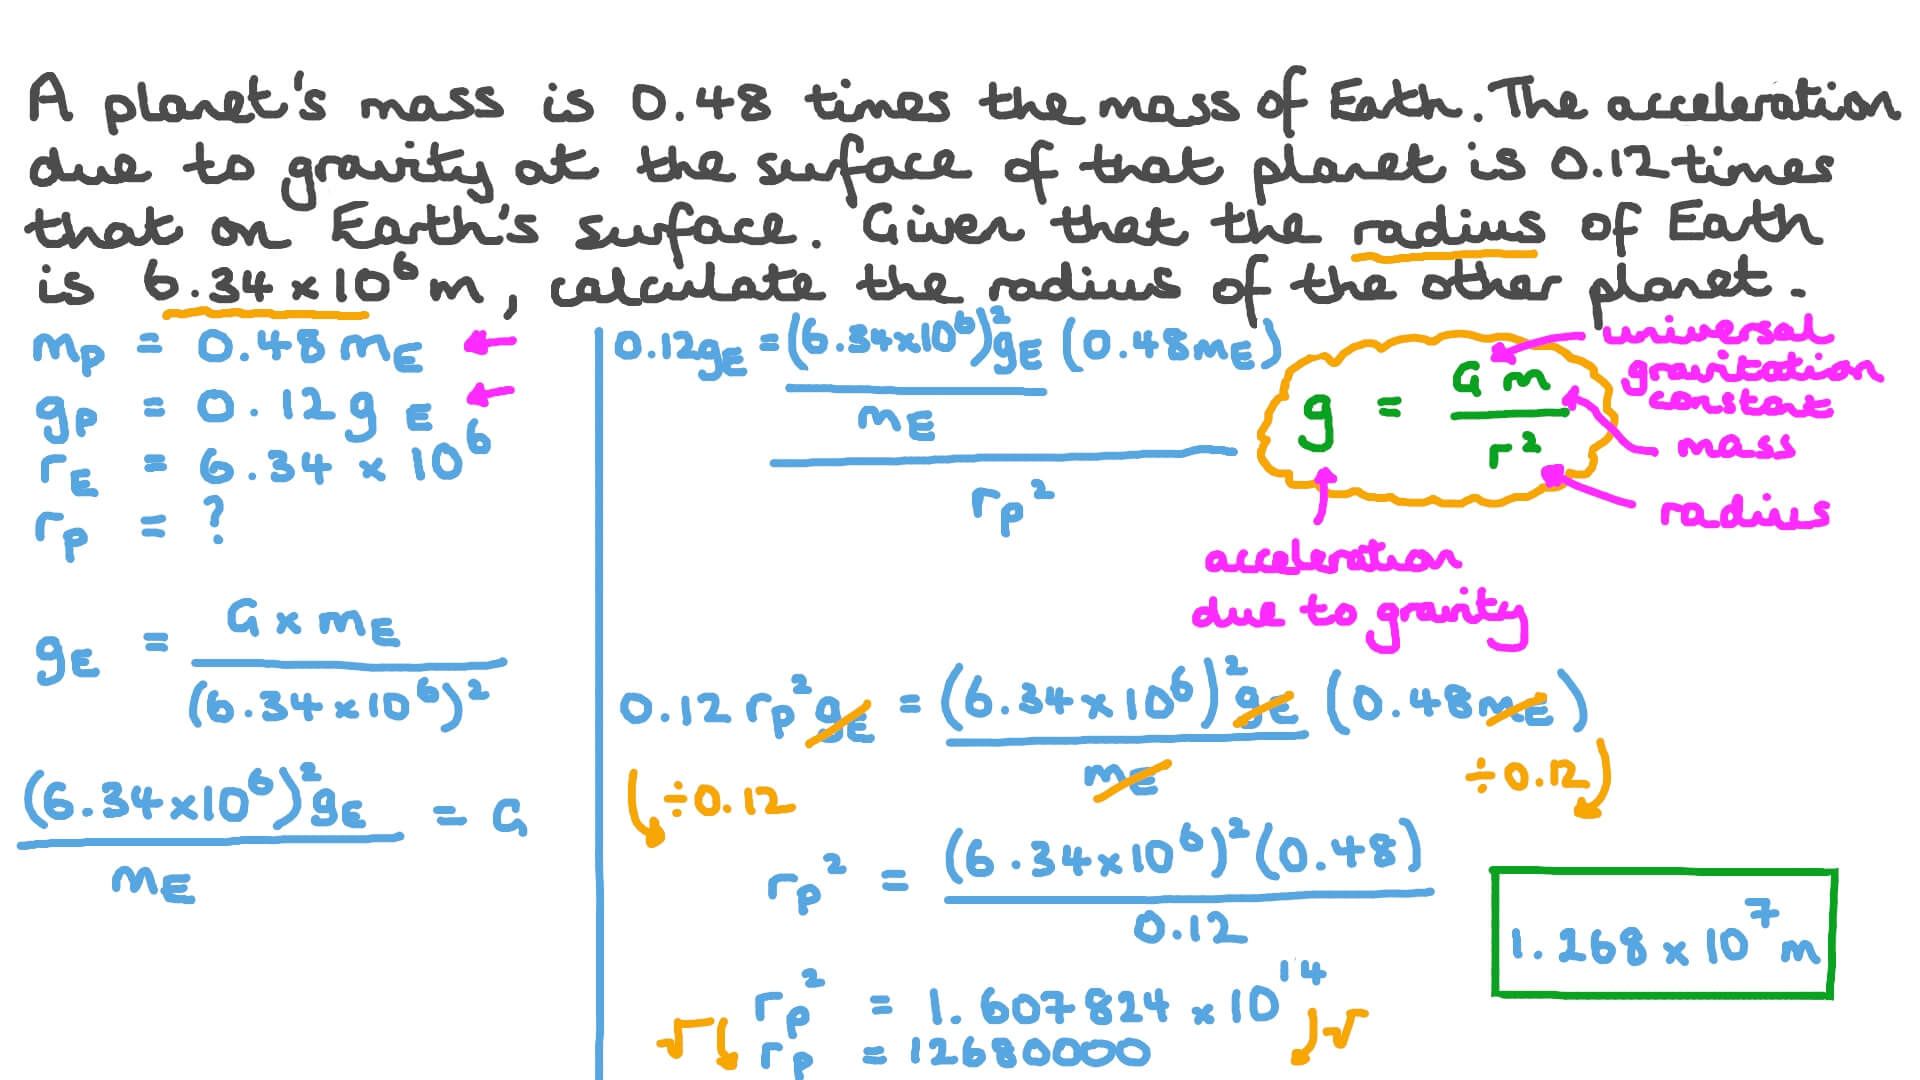 A planet's mass is 0.48 times the mass of Earth. The acceleration
due to gravity at the surface of that planet is 0.12 times
that on Earth's surface. Given that the radius of Earth
is 6.34 × 10⁶ m, calculate the radius of the other planet.
mₚ = 0.48 mE
gₚ = 0.12 g E
rE = 6.34 × 10⁶
rₚ = ?
gE = G × mE
(6.34 × 10⁶)²
(6.34×10⁶)² gE = G
mE
0.12gE = (6.34×10⁶)² gE (0.48mE)
mE
rₚ²
g = G m
r²
universal
gravitation
constant
mass
radius
acceleration
due to gravity
0.12 rₚ² gE = (6.34 × 10⁶)² gE (0.48mE)
mE
÷0.12
÷0.12
rₚ² = (6.34×10⁶)² (0.48)
0.12
rₚ² = 1.607824 × 10¹⁴
√ √
rₚ = 12680000
1.268 × 10⁷ m